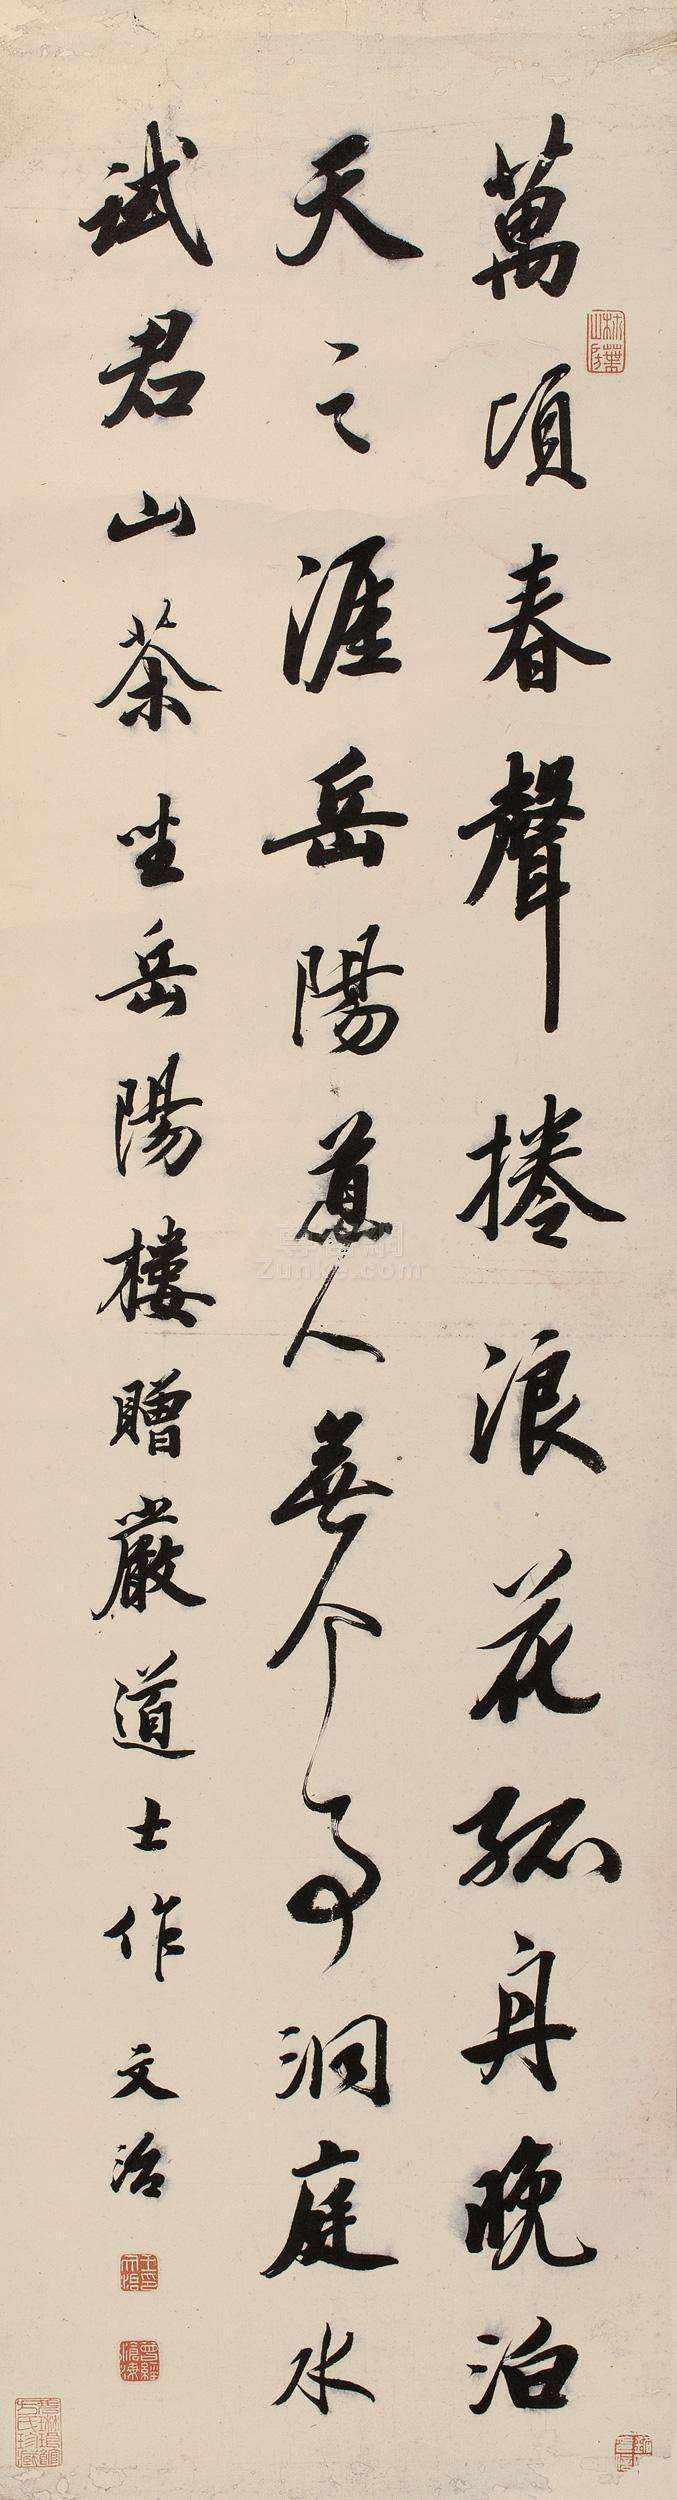 萬頃春聲捲浪花孤舟晚泊
天之涯岳陽道人無个事洞庭水
試君山茶坐岳陽樓贈嚴道士作
文治
柿葉山房
曾經滄海
Zunke.com